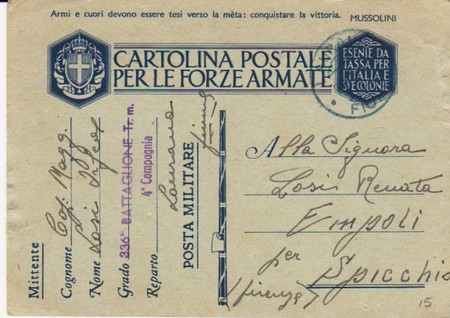 Armi e cuori devono essere tesi verso la mèta: conquistare la vittoria. MUSSOLINI
CARTOLINA POSTALE
PER LE FORZE ARMATE
ESENTE DA
TASSA PER
L'ITALIA E
SVE COLONIE
Mittente
Cognome
Nome Losi
Grado
Reparto
336° BATTAGLIONE Tr. m.
4ª Compagnia
Laurana
Fiume
POSTA MILITARE
Alla Signora
Losi Renata
Empoli
per
Spicchio
(firenze)
15